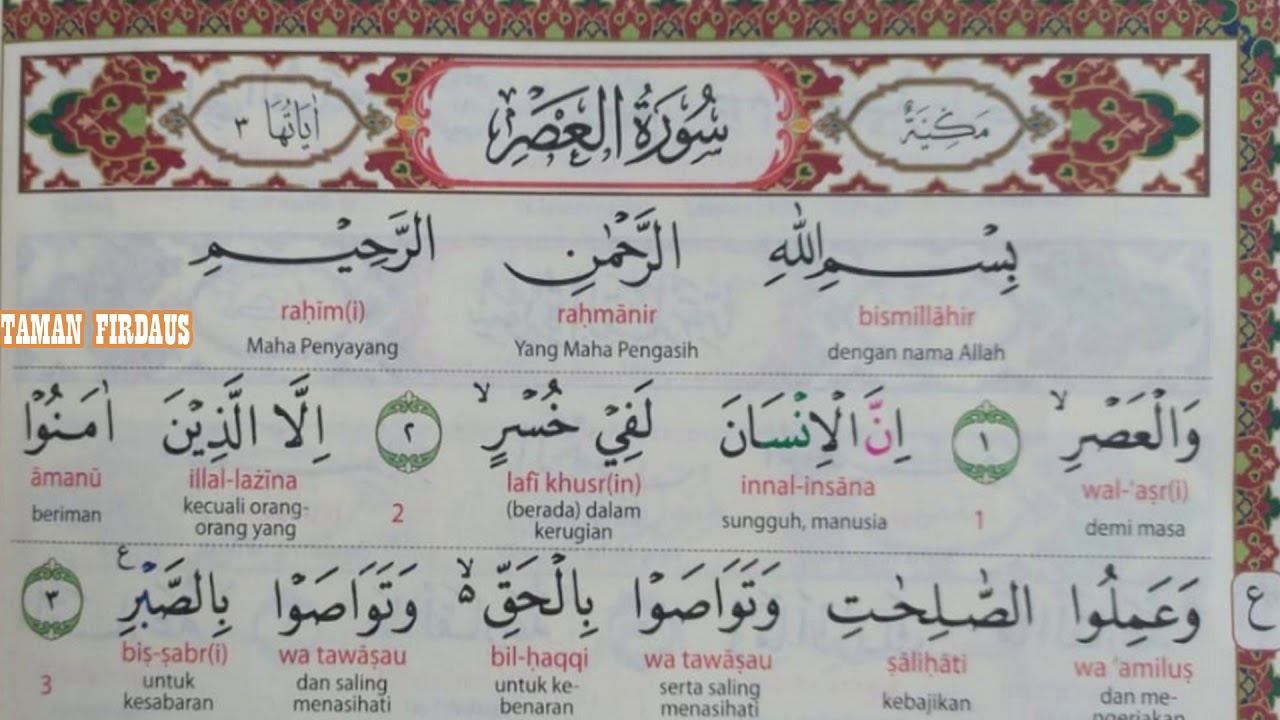 مَكِّيَّةٌ
سُوْرَةُ الْعَصْرِ
اٰيَاتُهَا ٣
بِسْمِ اللّٰهِ الرَّحْمٰنِ الرَّحِيْمِ
bismillāhir raḥmānir raḥīm(i)
dengan nama Allah Yang Maha Pengasih Maha Penyayang
TAMAN FIRDAUS
وَالْعَصْرِۙ ١ اِنَّ الْاِنْسَانَ لَفِيْ خُسْرٍۙ ٢ اِلَّا الَّذِيْنَ اٰمَنُوْا
wal-'aṣr(i) innal-insāna lafī khusr(in) illal-lażīna āmanū
demi masa 1 sungguh, manusia (berada) dalam kerugian 2 kecuali orang-orang yang beriman
وَعَمِلُوا الصّٰلِحٰتِ وَتَوَاصَوْا بِالْحَقِّ ەۙ وَتَوَاصَوْا بِالصَّبْرِ ࣖ ٣
ع
wa 'amiluṣ ṣāliḥāti wa tawāṣau bil-ḥaqqi wa tawāṣau biṣ-ṣabr(i)
dan me-ngerjakan kebajikan serta saling menasihati untuk ke-benaran dan saling menasihati untuk kesabaran 3